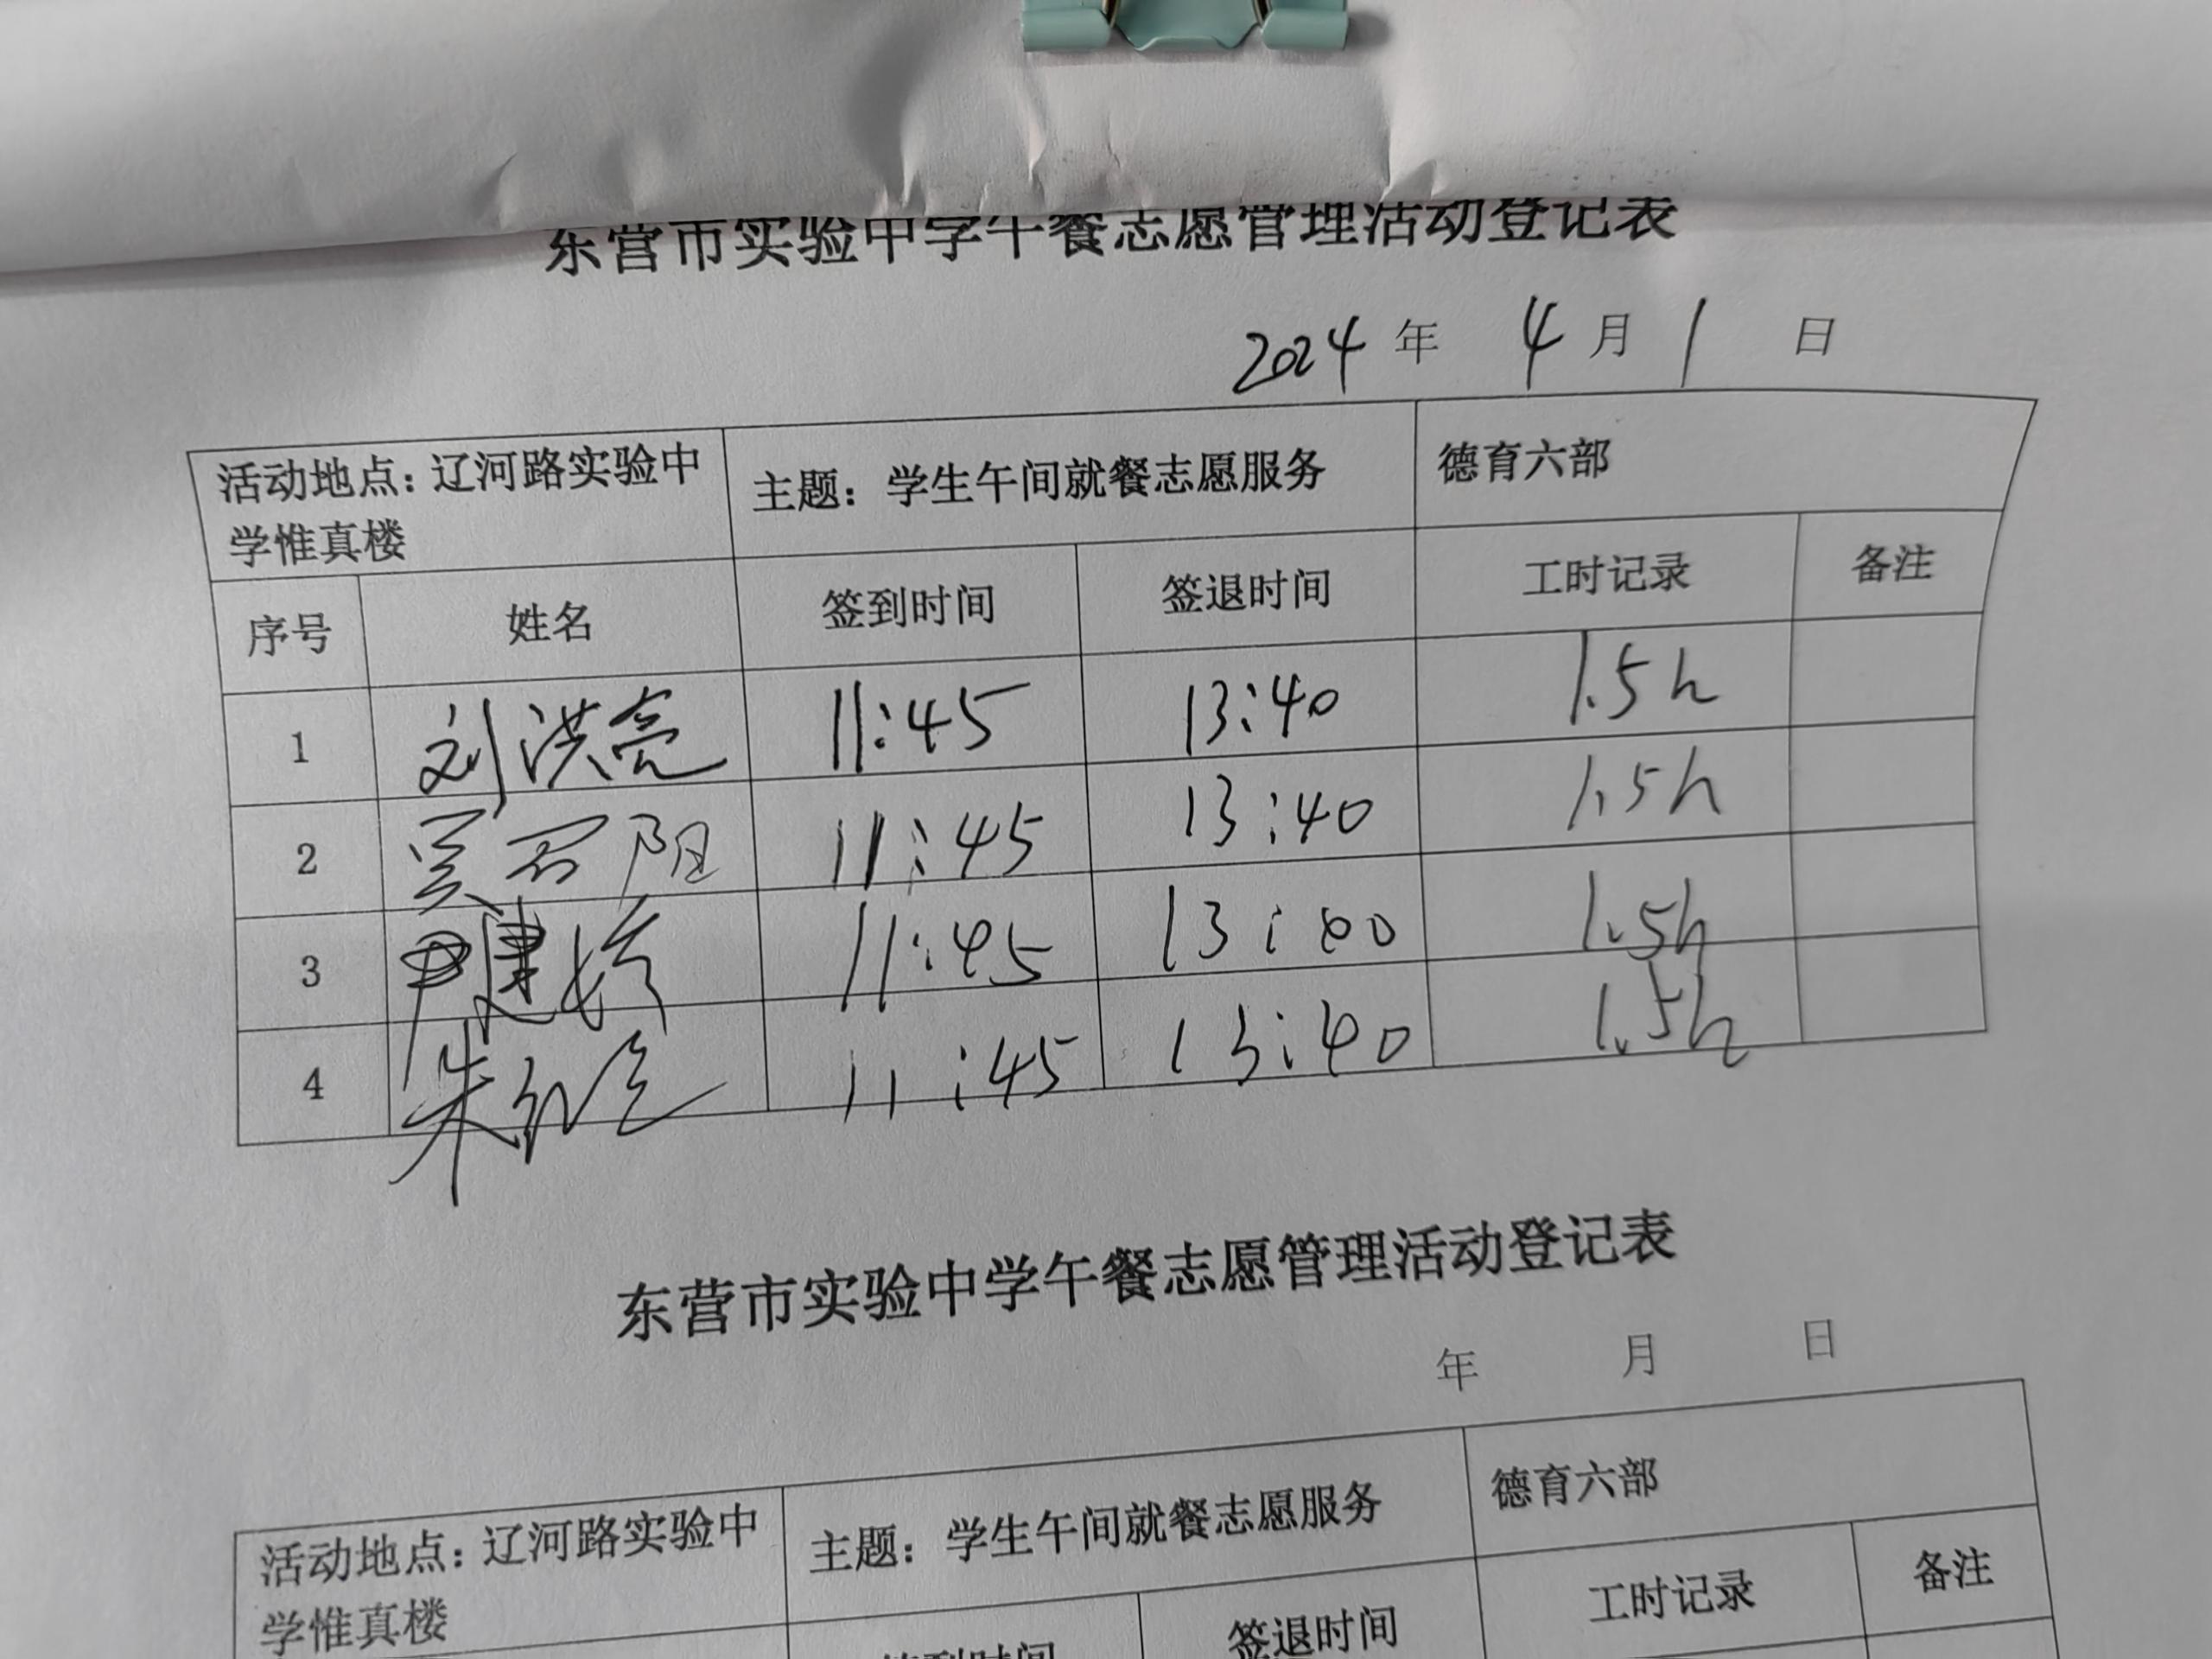 东营市实验中学午餐志愿管理活动登记表
2024 年 4 月 1 日
活动地点：辽河路实验中
学惟真楼
主题：学生午间就餐志愿服务
德育六部
序号 姓名 签到时间 签退时间 工时记录 备注
1 刘洪亮 11:45 13:40 1.5h
2 吴 阳 11:45 13:40 1.5h
3 尹建 11:45 13: 1.5h
4 朱 11:45 13:40 1.5h
东营市实验中学午餐志愿管理活动登记表
年 月 日
活动地点：辽河路实验中
学惟真楼
主题：学生午间就餐志愿服务
德育六部
签到时间 签退时间 工时记录 备注